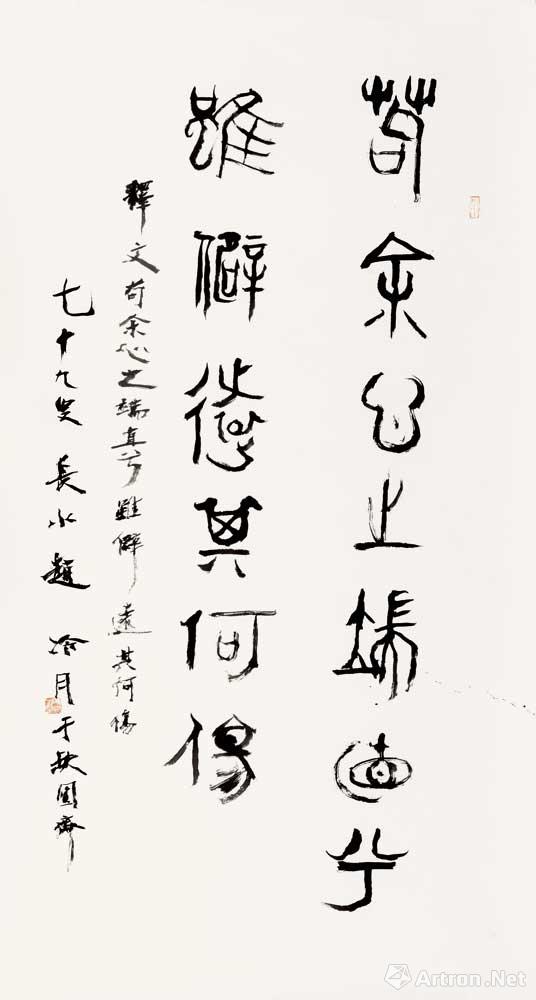 苟余心之端直兮
雖僻遠其何傷
釋文苟余心之端直兮雖僻遠其何傷
七十九叟 長水趙冷月于缺圓齋
雅昌藝術網
Artron.Net